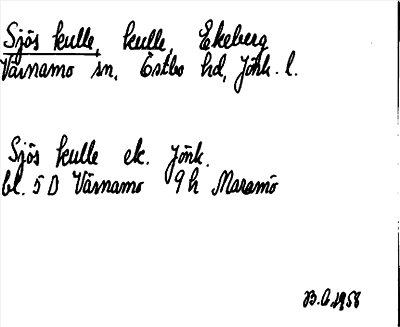 Sjös kulle, kulle, Ekeberg
Värnamo sn, Östbo hd, Jönk. l.
Sjös kulle ek. Jönk.
bl. 5 D Värnamo 9 h Maramö
B. G. 1958